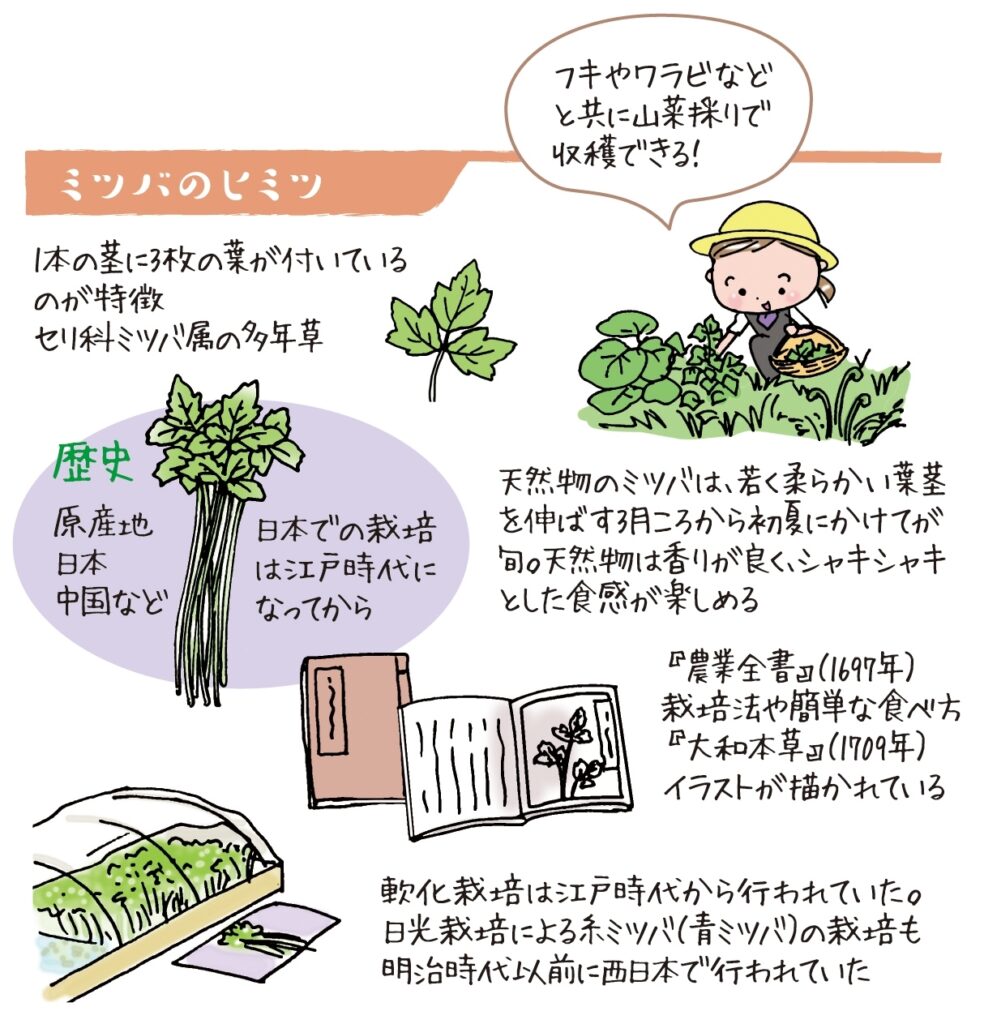 フキやワラビなど
と共に山菜採りで
収穫できる!
ミツバのヒミツ
1本の茎に3枚の葉が付いている
のが特徴
セリ科ミツバ属の多年草
歴史
原産地
日本
中国など
日本での栽培
は江戸時代に
なってから
天然物のミツバは、若く柔らかい葉茎
を伸ばす3月ころから初夏にかけてが
旬。天然物は香りが良く、シャキシャキ
とした食感が楽しめる
『農業全書』(1697年)
栽培法や簡単な食べ方
『大和本草』(1709年)
イラストが描かれている
軟化栽培は江戸時代から行われていた。
日光栽培による糸ミツバ(青ミツバ)の栽培も
明治時代以前に西日本で行われていた